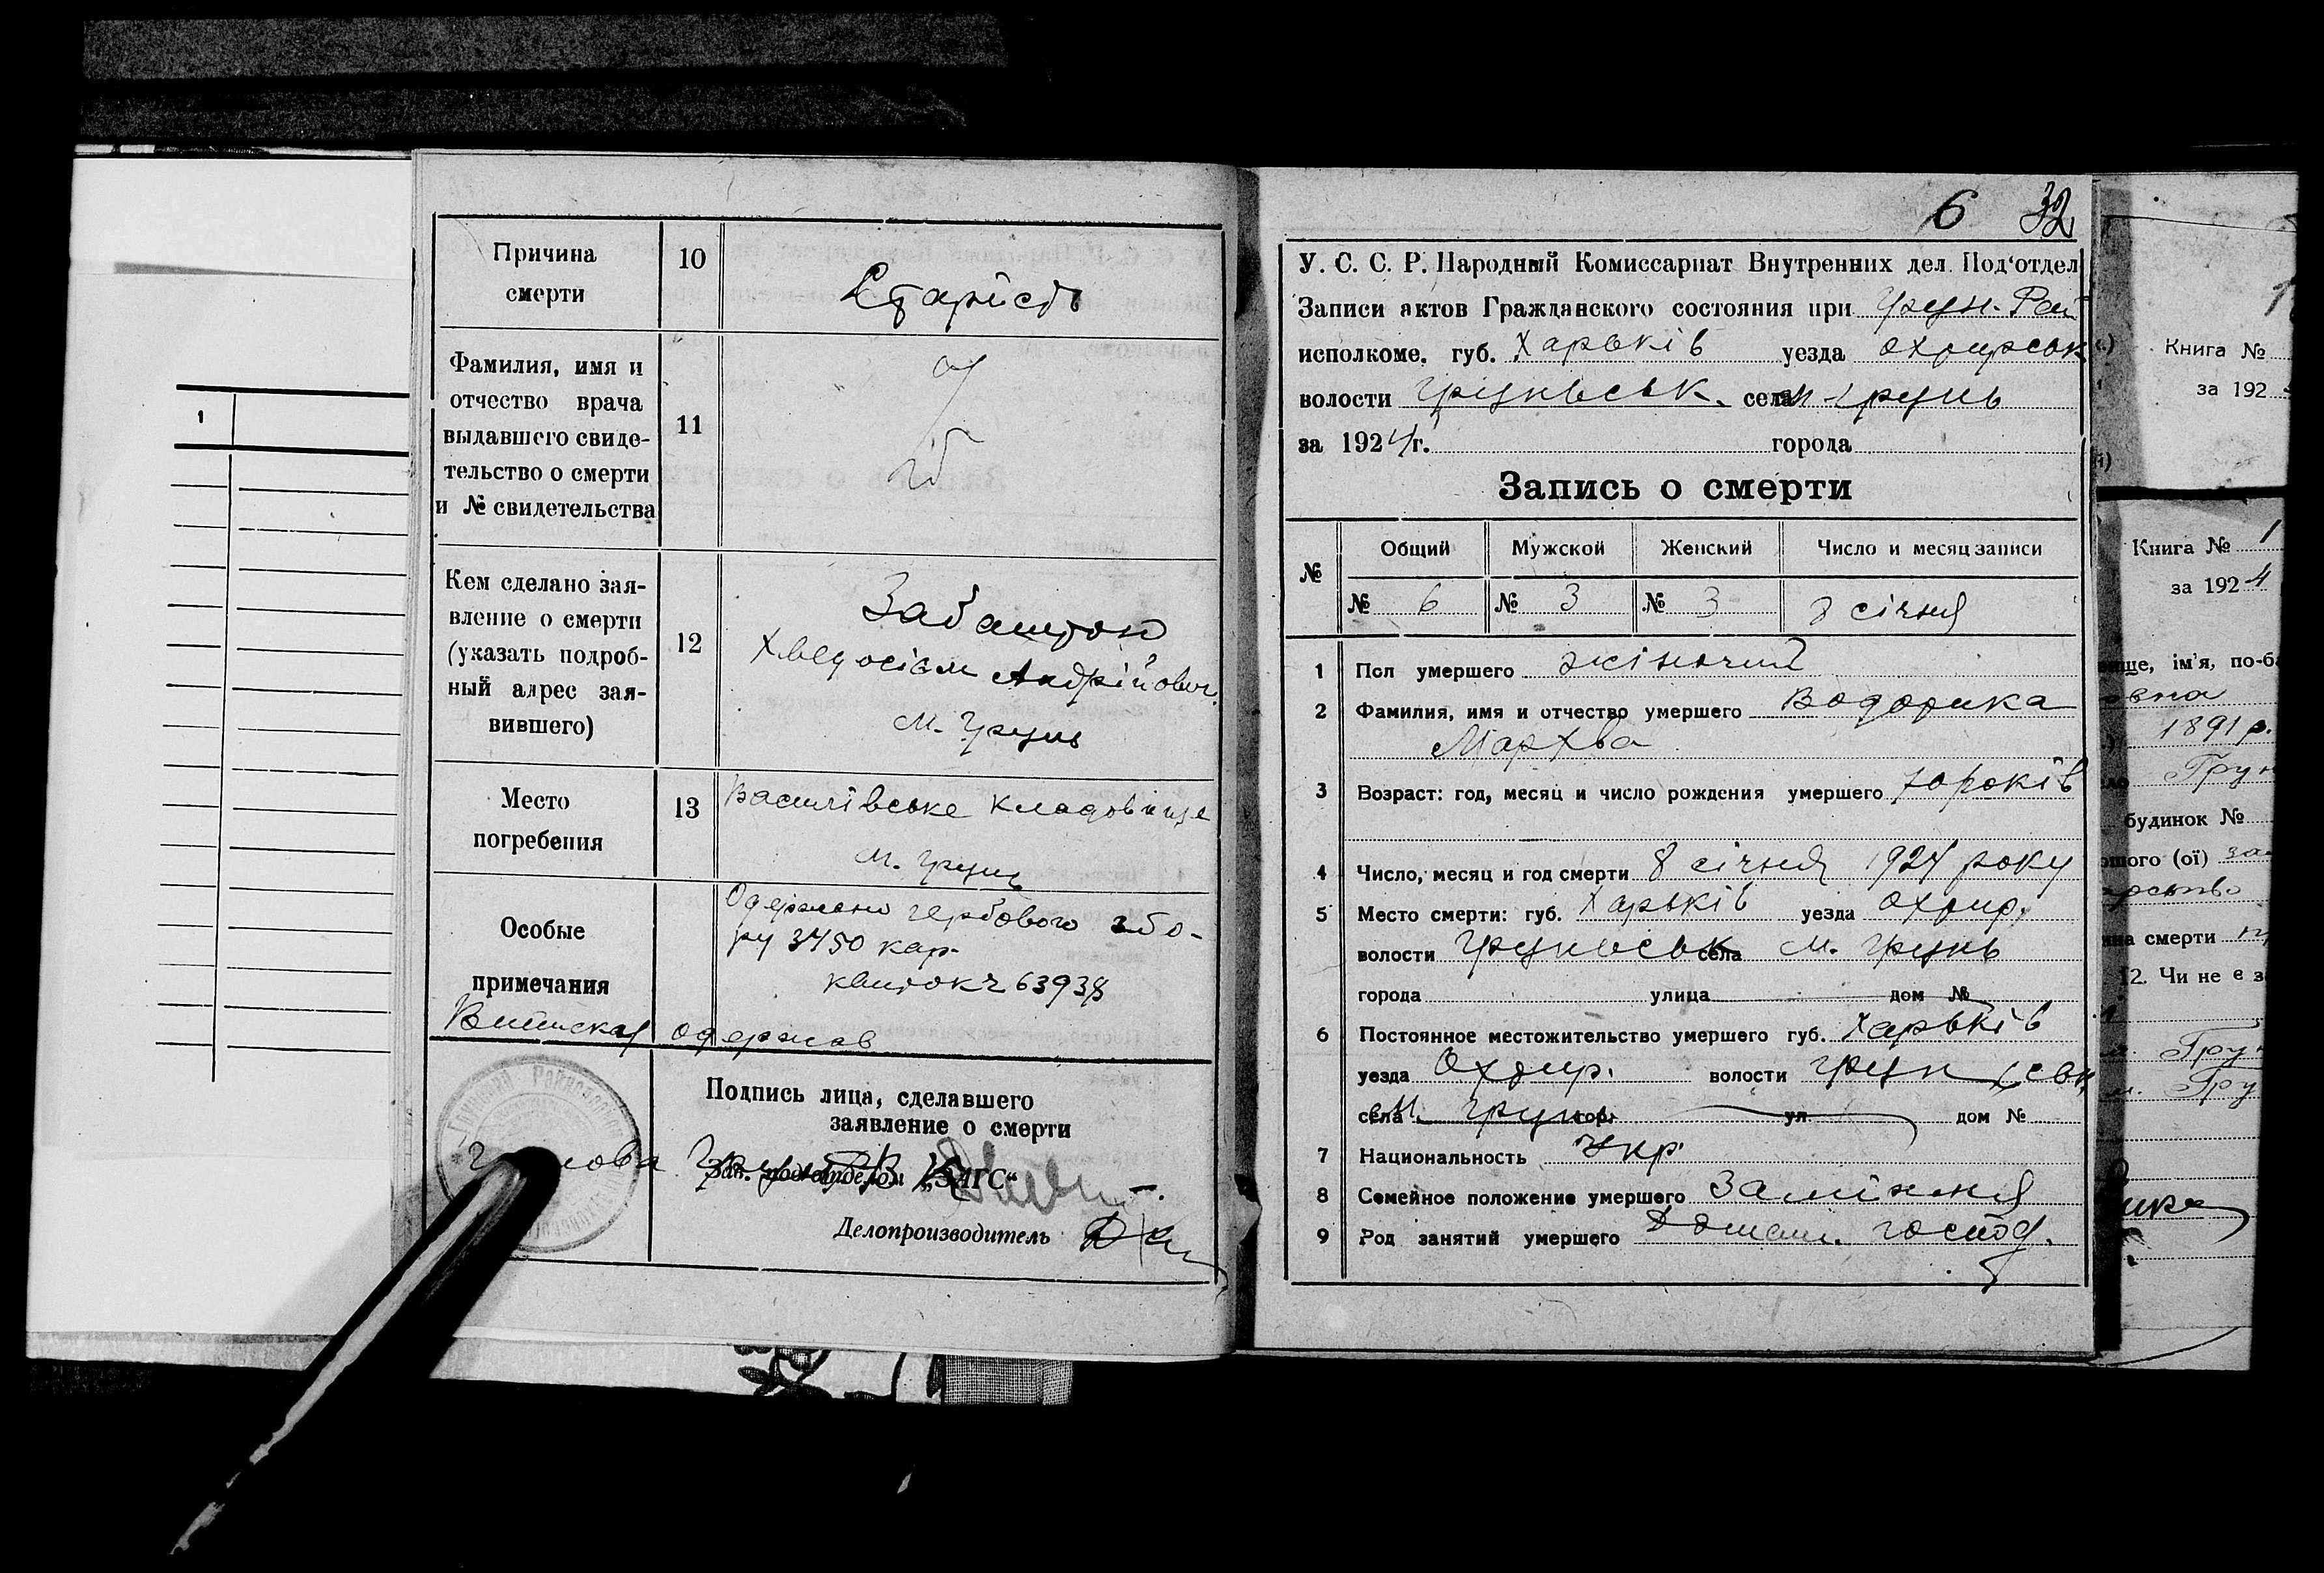 1
Причина
смерти
10
Старість
Фамилия, имя и
отчество врача
выдавшего свиде-
тельство о смерти
и № свидетельства
11
Кем сделано зая-
вление о смерти
(указать подроб-
ный адрес зая-
вившего)
12
Забаштою
Хведосієм Андрійович
м. Грунь
Место
погребения
13
Василівське кладовище
м. Грунь
Особые
примечания
Одержано гербового збо-
ру 3750 кар.
квиток ч 63938
одержав
Подпись лица, сделавшего
заявление о смерти
Зав. подотделом „ЗАГС“
Делопроизводитель
6 32
У. С. С. Р. Народный Комиссариат Внутренних дел. Под‘отдел
Записи актов Гражданского состояния при Грун. Рай
исполкоме, губ. Харьків уезда Охтирськ
волости Груньськ. села м Грунь
за 1924 г. города
Запись о смерти
№ Общий Мужской Женский Число и месяц записи
№ 6 № 3 № 3 8 січня
1 Пол умершего жіночий
2 Фамилия, имя и отчество умершего Водорика
Мархва
3 Возраст: год, месяц и число рождения умершего 70 років
4 Число, месяц и год смерти 8 січня 1924 року
5 Место смерти: губ. Харьків уезда Охтир.
волости Груньськ села м. Грунь
города улица дом №
6 Постоянное местожительство умершего губ. Харьків
уезда Охтир. волости
села м. Грунь гор. ул. дом №
7 Национальность Укр.
8 Семейное положение умершего Заміжня
9 Род занятий умершего Домаш. господ.
Книга №
за 192
Книга № 1
за 1924
ім'я, по-б
1891 р.
Грун
будинок №
(ої)
смерти
12. Чи не є з
Грун
м. Гру